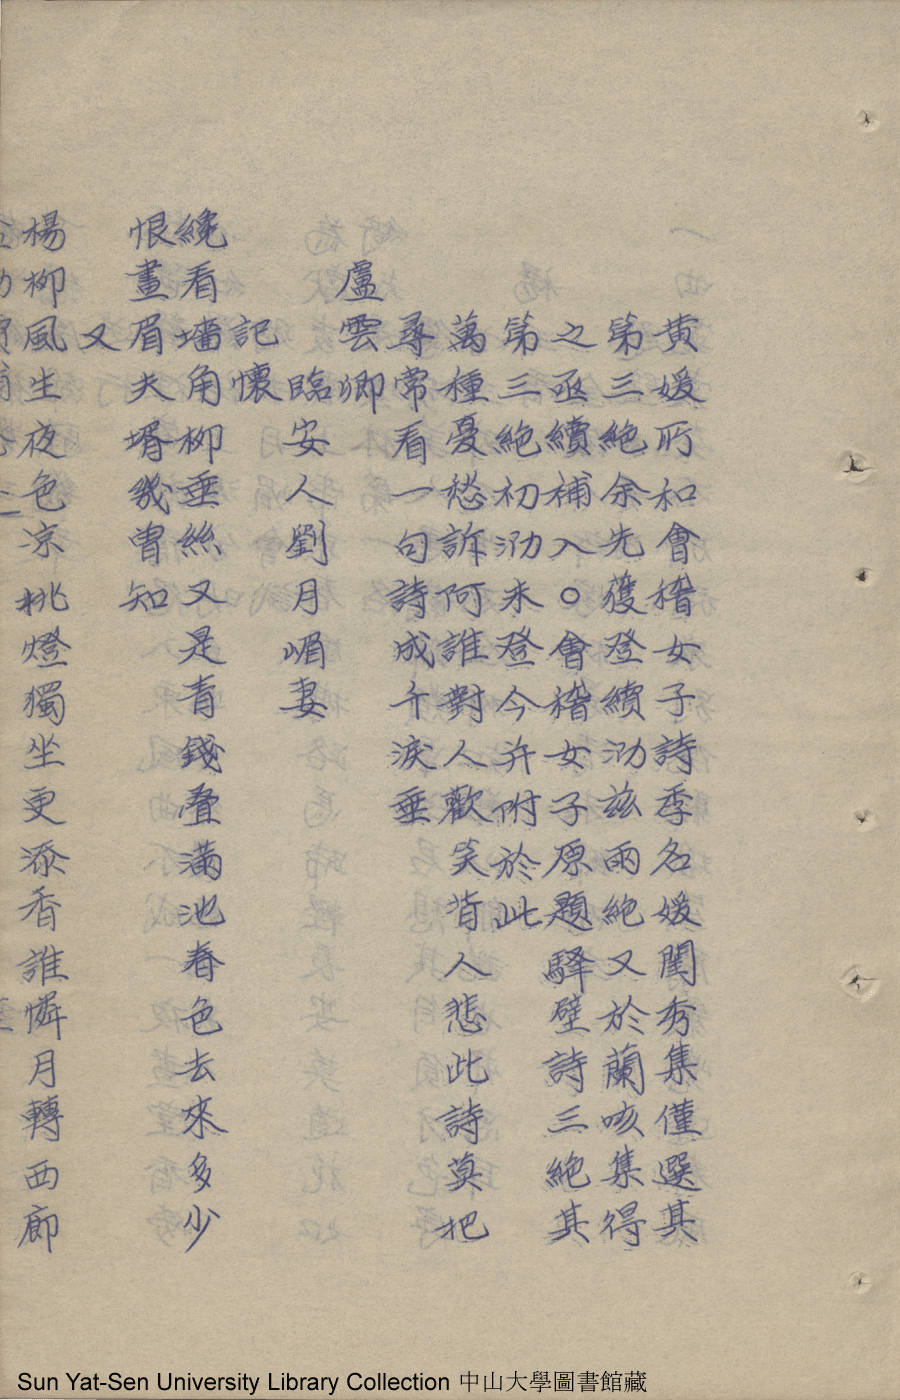 黄媛所和會稽女子詩季名媛閨秀集僅選其
第三絶余先獲登續泐茲兩絶又於蘭咳集得
之亟續補入○會稽女子原題驛壁詩三絶其
第三絶初泐未登今并附於此
萬種憂愁訴阿誰對人歡笑背人悲此詩莫把
尋常看一句詩成千淚垂
盧雲卿
臨安人劉月嵋妻
記懷
纔看墻角柳垂絲又是青錢叠滿池春色去來多少
恨畫眉夫壻幾曾知
又
楊柳風生夜色凉挑燈獨坐更添香誰憐月轉西廊
Sun Yat-Sen University Library Collection 中山大學圖書館藏